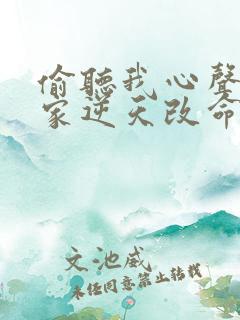 偷聽我心聲
家逆天改命
文池威
未经同意禁止转载